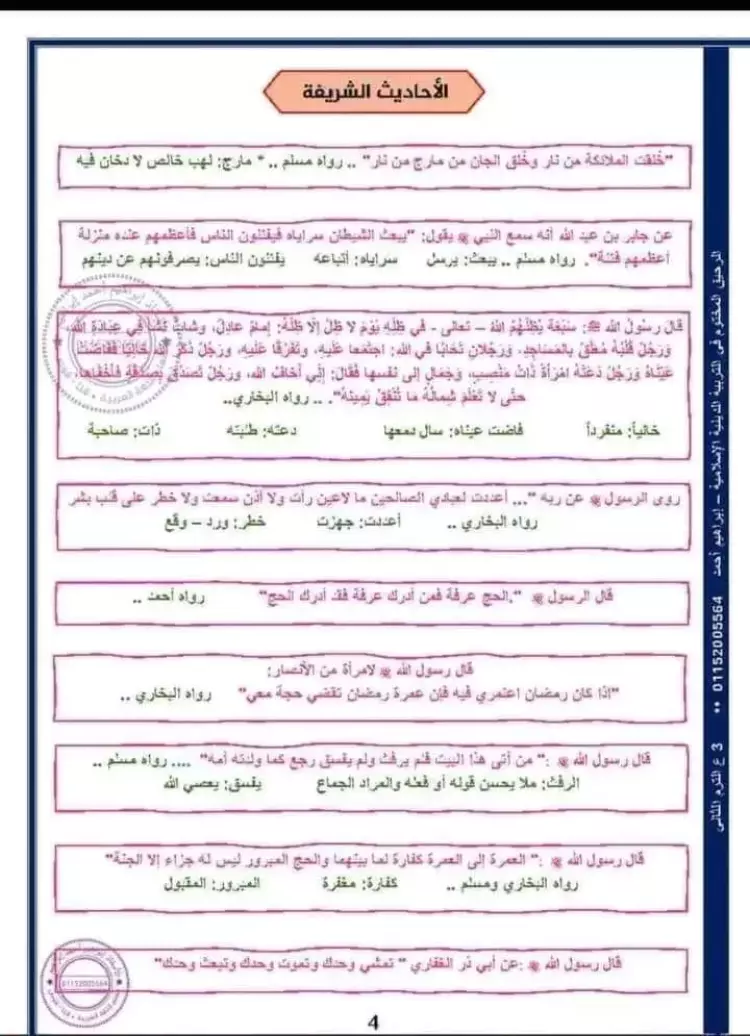 الأحاديث الشريفة
"خُلقت الملائكة من نار وخُلق الجان من مارج من نار" .. رواه مسلم .. * مارج: لهب خالص لا دخان فيه
عن جابر بن عبد الله أنه سمع النبي ﷺ يقول: "يبعث الشيطان سراياه فيفتنون الناس فأعظمهم عنده منزلة
أعظمهم فتنة". رواه مسلم .. يبعث: يرسل سراياه: أتباعه يفتنون الناس: يصرفونهم عن دينهم
قال رسولُ الله ﷺ: سَبْعَة يُظِلُّهُمُ اللهُ – تعالى - في ظِلِّهِ يَوْمَ لا ظِلَّ إلَّا ظِلُّهُ: إمَامٌ عادِلٌ، وشابٌّ نَشَأ في عِبَادَةِ اللَّه،
وَرَجُلٌ قَلْبُهُ مُعَلَّقٌ بالمَسَاجِدِ، وَرَجُلانِ تَحَابَّا في الله: اجتَمعا عَلَيهِ، وتَفَرَّقَا عَلَيهِ، وَرَجُلٌ ذَكَرَ اللهَ خَالِيًا فَفَاضَتْ
عَيْنَاهُ وَرَجُلٌ دَعَتْهُ امْرَأةٌ ذَاتُ مَنْصِبٍ، وَجَمَالٍ إلى نفسِها فَقَالَ: إنِّي أخَافُ الله، وَرَجُلٌ تَصَدَّقَ بِصَدَقَةٍ فَأخْفَاهَا،
حتَّى لا تَعْلَمَ شِمَالُهُ مَا تُنْفِقُ يَمِينُهُ". .. رواه البخاري..
خالياً: منفرداً فاضت عيناه: سال دمعها دعته: طلبته ذات: صاحبة
روى الرسول ﷺ عن ربه "... أعددت لعبادي الصالحين ما لاعين رأت ولا أذن سمعت ولا خطر على قلب بشر
رواه البخاري .. أعددت: جهزت خطر: ورد – وقع
قال الرسول ﷺ ".الحج عرفة فمن أدرك عرفة فقد أدرك الحج" رواه أحمد ..
قال رسول الله ﷺ لامرأة من الأنصار:
"اذا كان رمضان اعتمري فيه فإن عمرة رمضان تقضي حجة معي" رواه البخاري ..
قال رسول الله ﷺ :" من أتى هذا البيت فلم يرفث ولم يفسق رجع كما ولدته أمه" .... رواه مسلم ..
الرفث: ملا يحسن قوله أو فعله والمراد الجماع يفسق: يعصي الله
قال رسول الله ﷺ :" العمرة إلى العمرة كفارة لما بينهما والحج المبرور ليس له جزاء إلا الجنة"
رواه البخاري ومسلم .. كفارة: مغفرة المبرور: المقبول
قال رسول الله ﷺ :عن أبي ذر الغفاري " تمشي وحدك وتموت وحدك وتبعث وحدك"
4
الرحيق المختوم في التربية الدينية الإسلامية – إبراهيم أحمد 01152005564 ** 3 ع الترم الثانى
01152005564